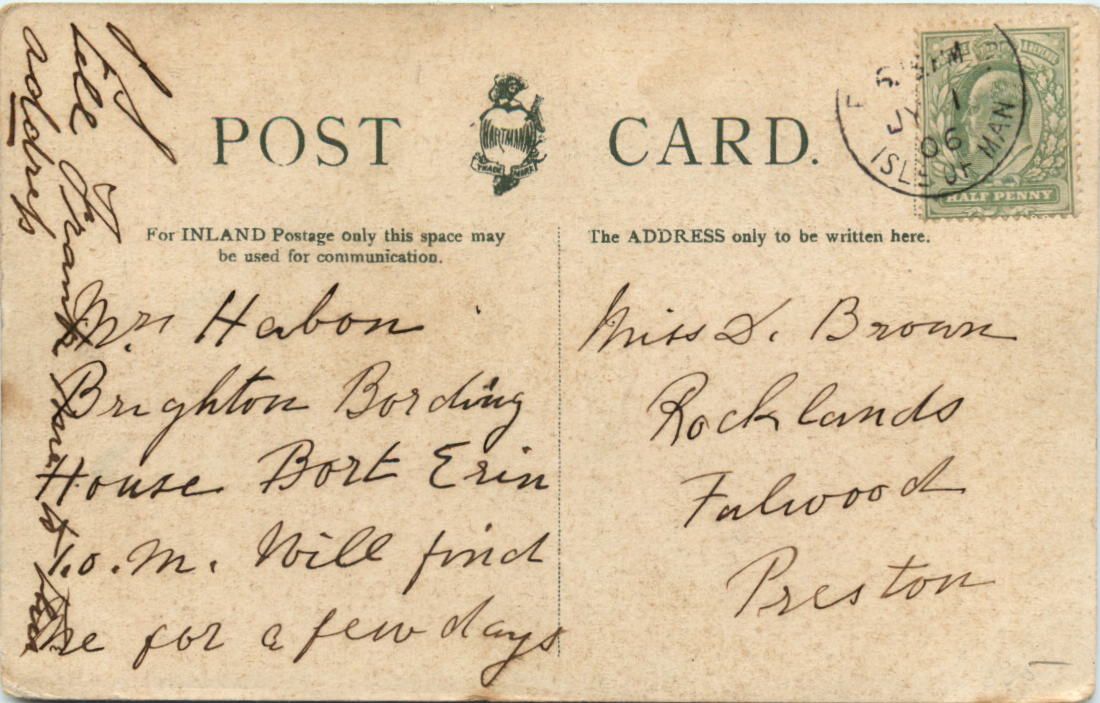 POST CARD.
HARTMANN
TRADE MARK
For INLAND Postage only this space may
be used for communication.
The ADDRESS only to be written here.
JY 1
06
ISLE OF MAN
HALF PENNY
Mrs Habon
Brighton Bording
House Bort Erin
I.o.M. Will find
me for a few days
Miss D. Brown
Rocklands
Fulwood
Preston
Tell Frank
address